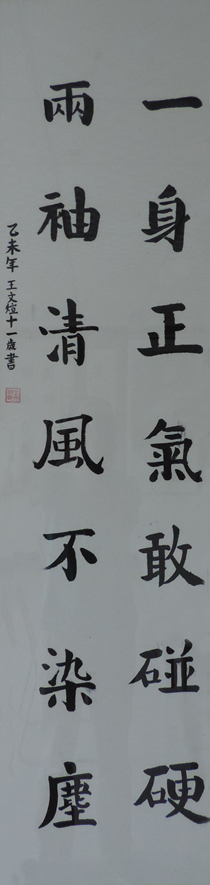 一身正氣敢碰硬
兩袖清風不染塵
乙未年 王文煊十一歲書